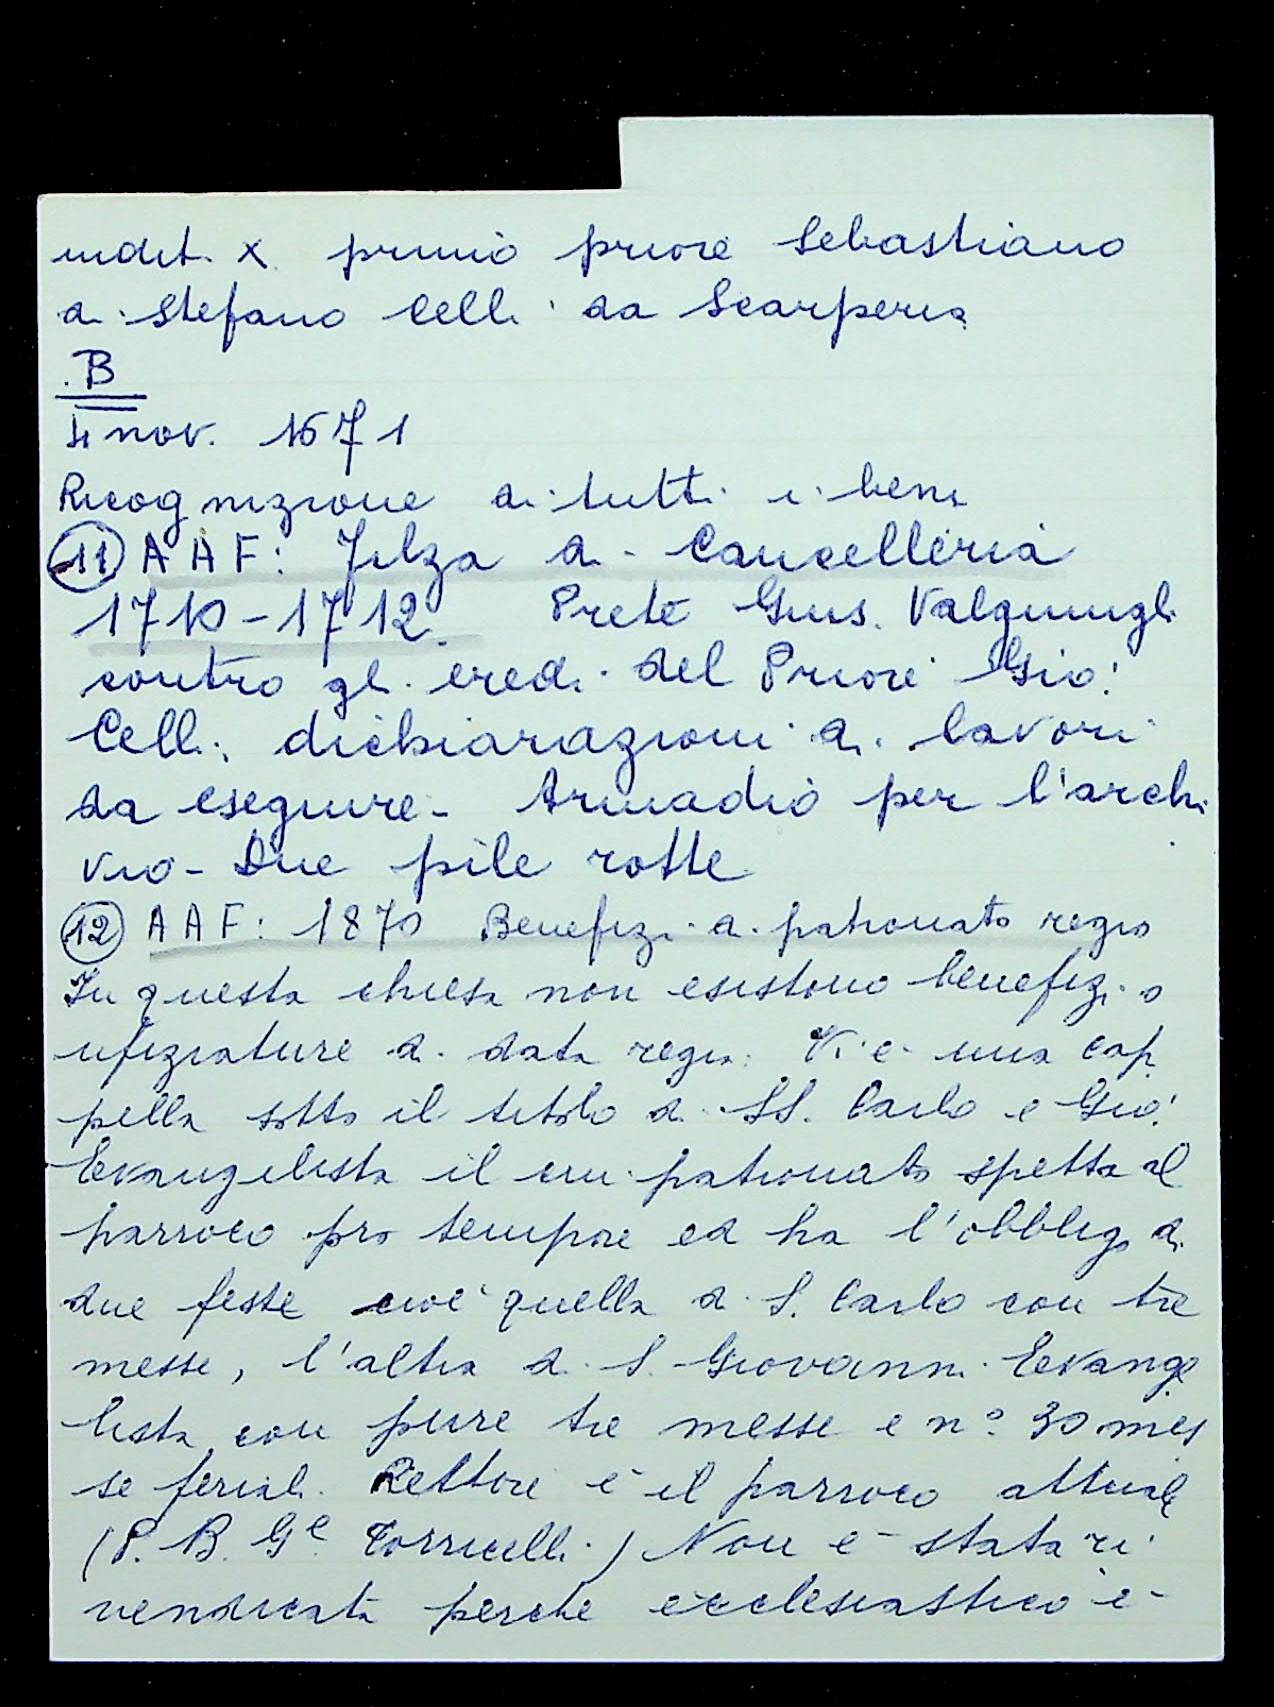 indit. X. primo priore Sebastiano
di Stefano Celli da Scarperia
B
4 nov. 1671
Ricognizione di tutti i beni
(11) AAF: Filza di Cancelleria
1710-1712. Prete Gius. Valgimigli
contro gli eredi del Priore Gio:
Celli; dichiarazioni di lavori
da eseguire - Armadio per l'archi
vio - Due pile rotte
(12) AAF: 1870 Benefizi di patronato regio
In questa chiesa non esistono benefizi o
ufiziature di data regia: Vi è una cap
pella sotto il titolo di SS. Carlo e Gio:
Evangelista il cui patronato spetta al
parroco pro tempore ed ha l'obbligo di
due feste cioè quella di S. Carlo con tre
messe, l'altra di S. Giovanni Evange
lista con pure tre messe e n° 30 mes
se feriali. Rettore è il parroco attuale
(P. B. Ge. Torricelli) Non è stata ri
vendicata perche ecclesiastico è